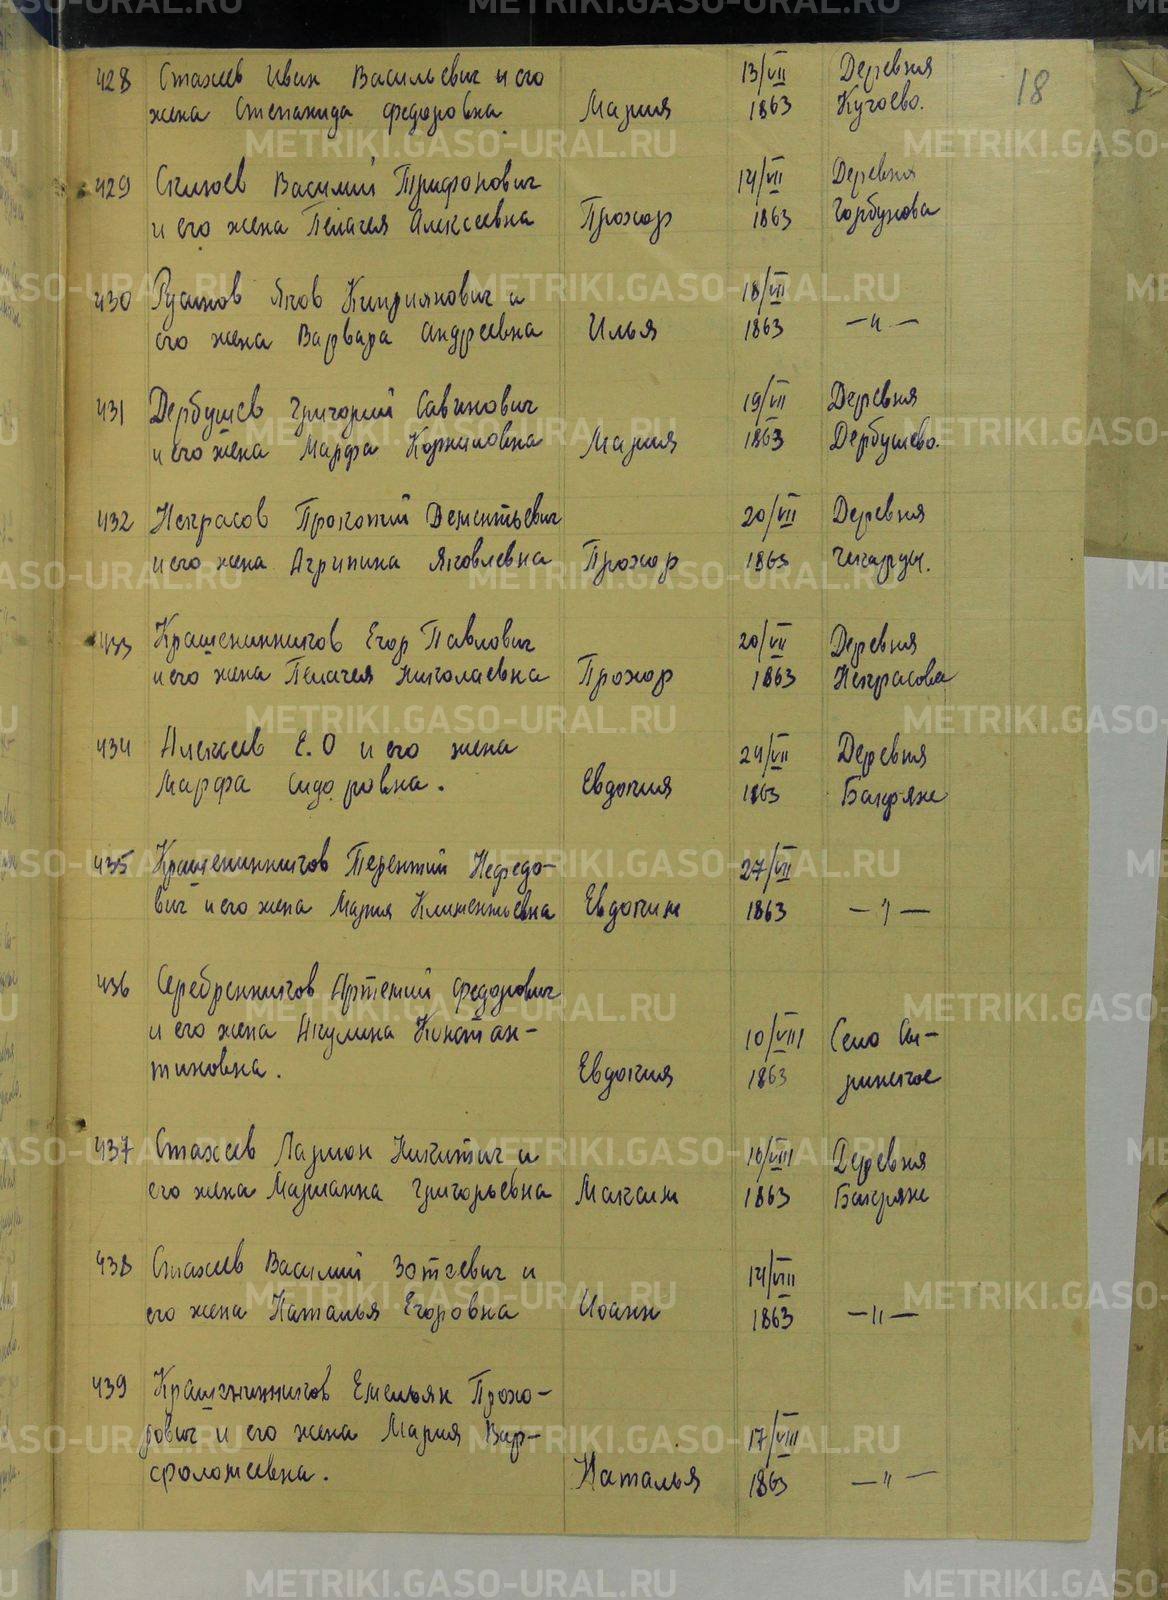 18
428 Стахеев Иван Васильевич и его 13/VII Деревня
жена Степанида Федоровна Мария 1863 Кучаево.
429 Василий Трифонович 14/VII Деревня
и его жена Пелагея Алексеевна Прохор 1863 Горбунова
430 Русинов Яков Киприянович и 18/VII
его жена Варвара Андреевна Илья 1863 —"—
431 Дербушев Григорий Савинович 19/VII Деревня
и его жена Марфа Корниловна Мария 1863 Дербушево.
432 Некрасов Прокопий Дементьевич 20/VII Деревня
и его жена Агрипина Яковлевна Прохор 1863 Чекарды.
433 Крашенинников Егор Павлович 20/VII Деревня
и его жена Пелагея Николаевна Прохор 1863 Некрасова
434 Алексеев Е.О и его жена 24/VII Деревня
Марфа Сидоровна. Евдокия 1863 Бакряж
435 Крашенинников Терентий Нефедо- 27/VII
вич и его жена Мария Климентьевна Евдоким 1863 —"—
436 Серебренников Артемий Федорович
и его жена Акулина Констан- 10/VIII Село Сы-
тиновна. Евдокия 1863 ринское
437 Стахеев Ларион Никитич и 10/VIII Деревня
его жена Марианна Григорьевна Максим 1863 Бакряж
438 Стахеев Василий Зотеевич и 14/VIII
его жена Наталья Егоровна Иоанн 1863 —"—
439 Крашенинников Емельян Прохо-
рович и его жена Мария Вар- 17/VIII
фоломеевна. Наталья 1863 —"—
METRIKI.GASO-URAL.RU